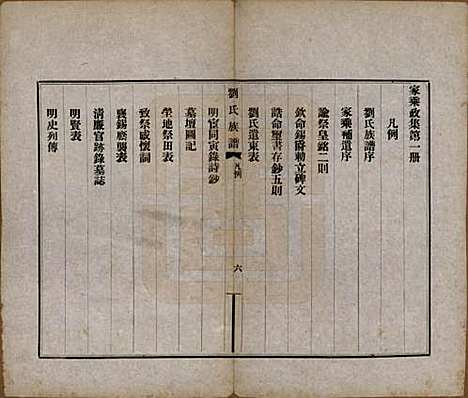 家乘政集第一册
凡例
劉氏族譜序
家乘補遺序
諭祭皇銘二則
欽命錫爵勅立碑文
誥命璽書存鈔五則
劉氏遺東表
劉氏族譜
凡例
六
明官同寅錄詩鈔
墓壇圖記
塋地祭田表
致祭感懷詞
襲錫廕襲表
清廉官跡錄墓誌
明賢表
明史列傳